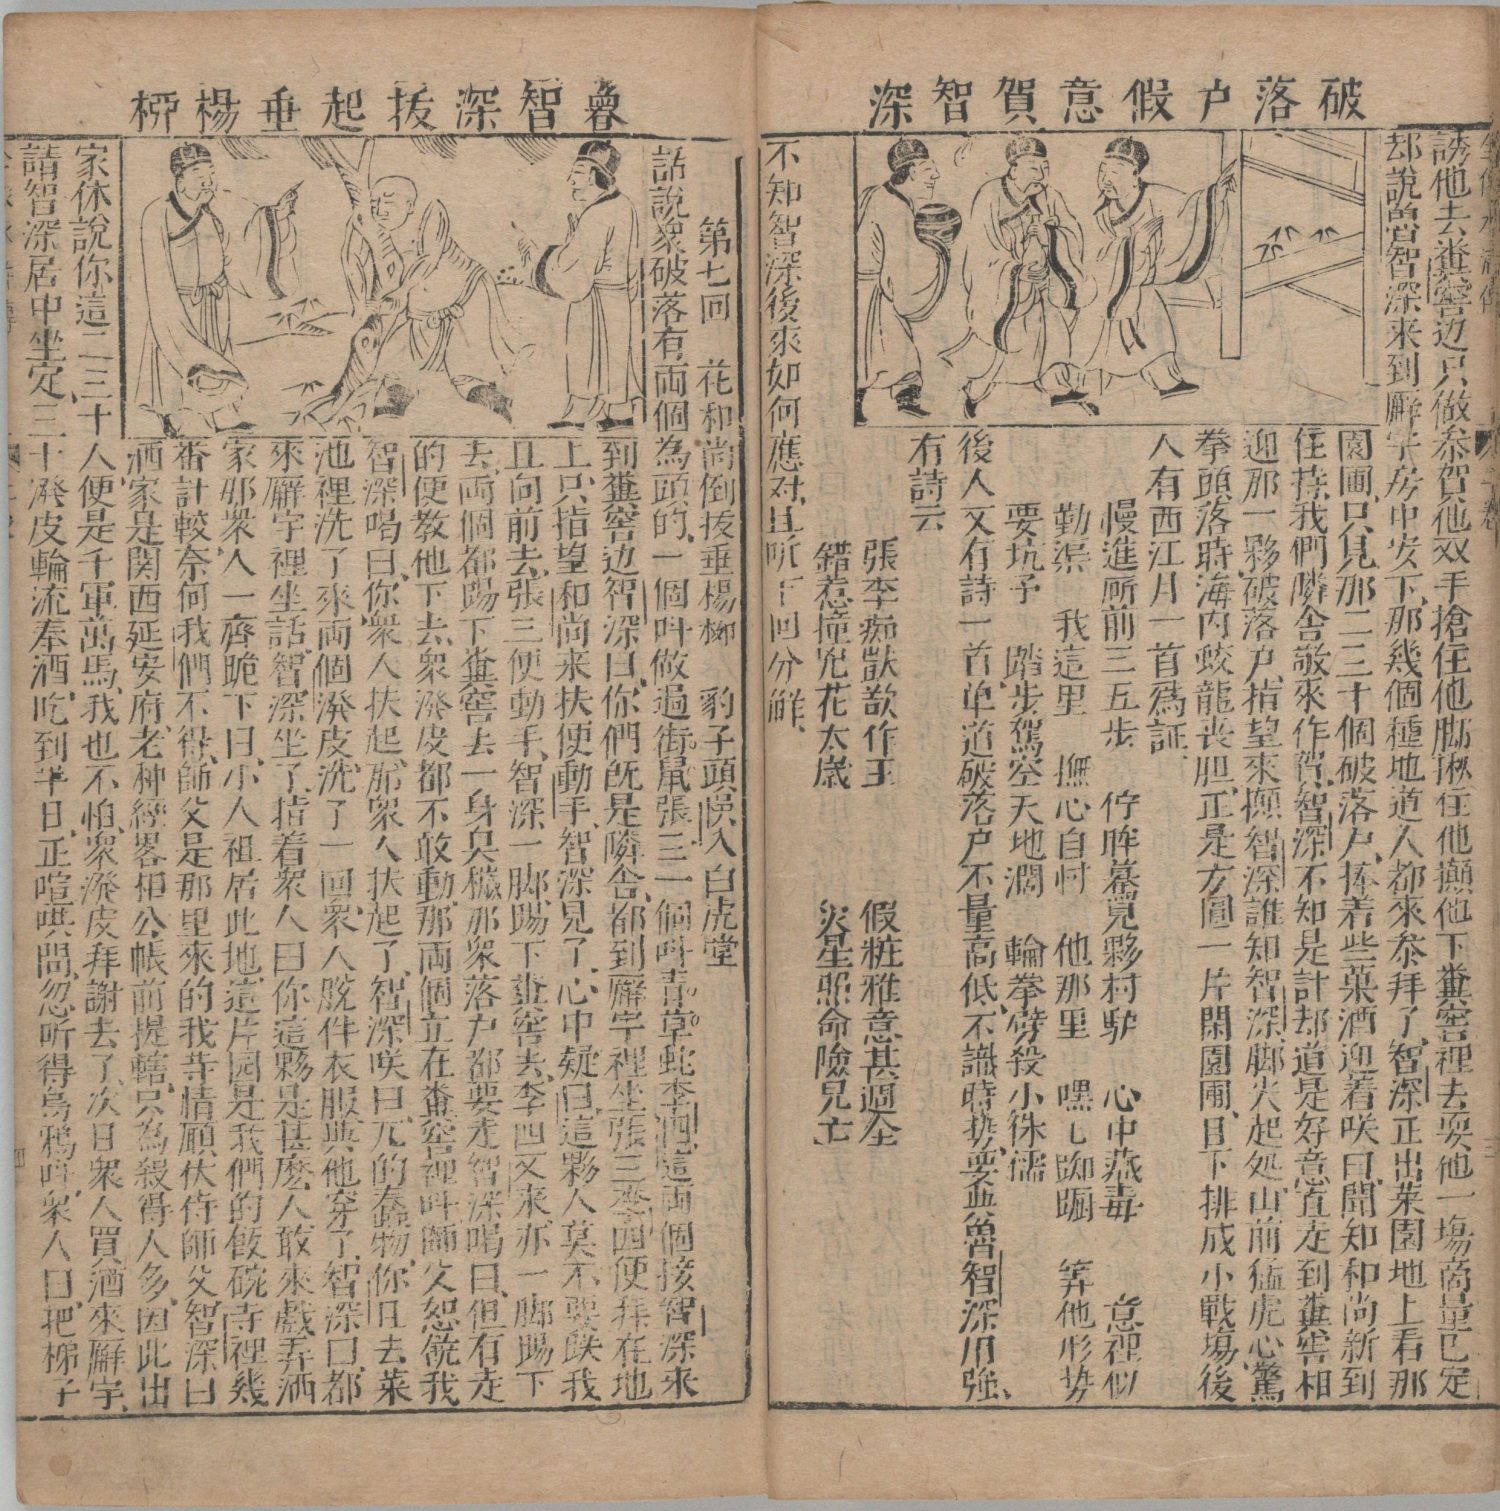 破落户假意賀智深
誘他去糞窖边只做参賀他双手搶住他脚揪住他顛他下糞窖裡去耍他一塲商量已定
却說魯智深来到廨宇房中安下那幾個種地道人都來参拜了智深正出菜園地上看那
園圃只見那二三十個破落户捧着些菓酒迎着咲曰聞知和尚新到
住持我們隣舍敬來作賀智深不知是計却道是好意直走到糞窖相
迎那一夥破落户指望來攧智深誰知智深脚尖起処山前猛虎心驚
拳頭落時海内蛟龍丧胆正是方圓一片閑園圃目下排成小戰塲後
人有西江月一首為証
慢進厠前三五步　佇眸驀覓夥村馿　心中蔵毒　意裡似
勤渠　我這里　撫心自忖　他那里　嘿七踟蹰　筭他形势
要坑予　踏步駕空天地濶　輪拳劈殺小侏儒
後人又有詩一首单道破落户不量高低不識時務要與魯智深用强
有詩云
張李痴獃欲作王　假粧雅意甚過全
錯惹撞児花太歲　災星照命險児亡
不知智深後來如何應对且听下回分觧
魯智深拔起垂楊柳
第七回　花和尚倒拔垂楊柳　豹子頭悞入白虎堂
話說衆破落有両個為頭的一個叫做過街鼠張三一個叫青草蛇李四這両個接智深来
到糞窖边智深曰你們既是隣舎都到廨宇裡坐張三李四便拜在地
上只指望和尚来扶便動手智深見了心中疑曰這夥人莫不要跌我
且向前去張三便動手智深一脚踢下糞窖去李四又来亦一脚踢下
去両個都踢下糞窖去一身臭穢那衆落户都要走智深喝曰但有走
的便教他下去衆潑皮都不敢動那両個立在糞窖裡叫師父恕饒我
智深喝曰你衆人扶起那衆人扶起了智深咲曰兀的蠢物你且去菜
池裡洗了來両個潑皮洗了一回衆人脫件衣服與他穿了智深曰都
來廨宇裡坐話智深坐了指着衆人曰你這夥是甚麽人敢來戯弄洒
家那衆人一齊跪下曰小人祖居此地這片园是我們的飯碗寺裡幾
番計較奈何我們不得師父是那里來的我寺情愿伏侍師父智深曰
洒家是関西延安府老种經畧相公帳前提轄只為殺得人多因此出
家休說你這二三十人便是千軍萬馬我也不怕衆潑皮拜謝去了次日衆人買酒來廨宇
請智深居中坐定三十潑皮輪流奉酒吃到半日正喧哄間忽听得烏鴉叫衆人曰把梯子